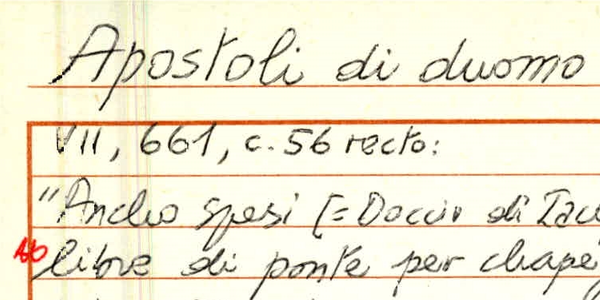 Apostoli di duomo
VII, 661, c. 56 recto:
"Ancho spesi [= Doccio di Iac
libre di ponte per chape